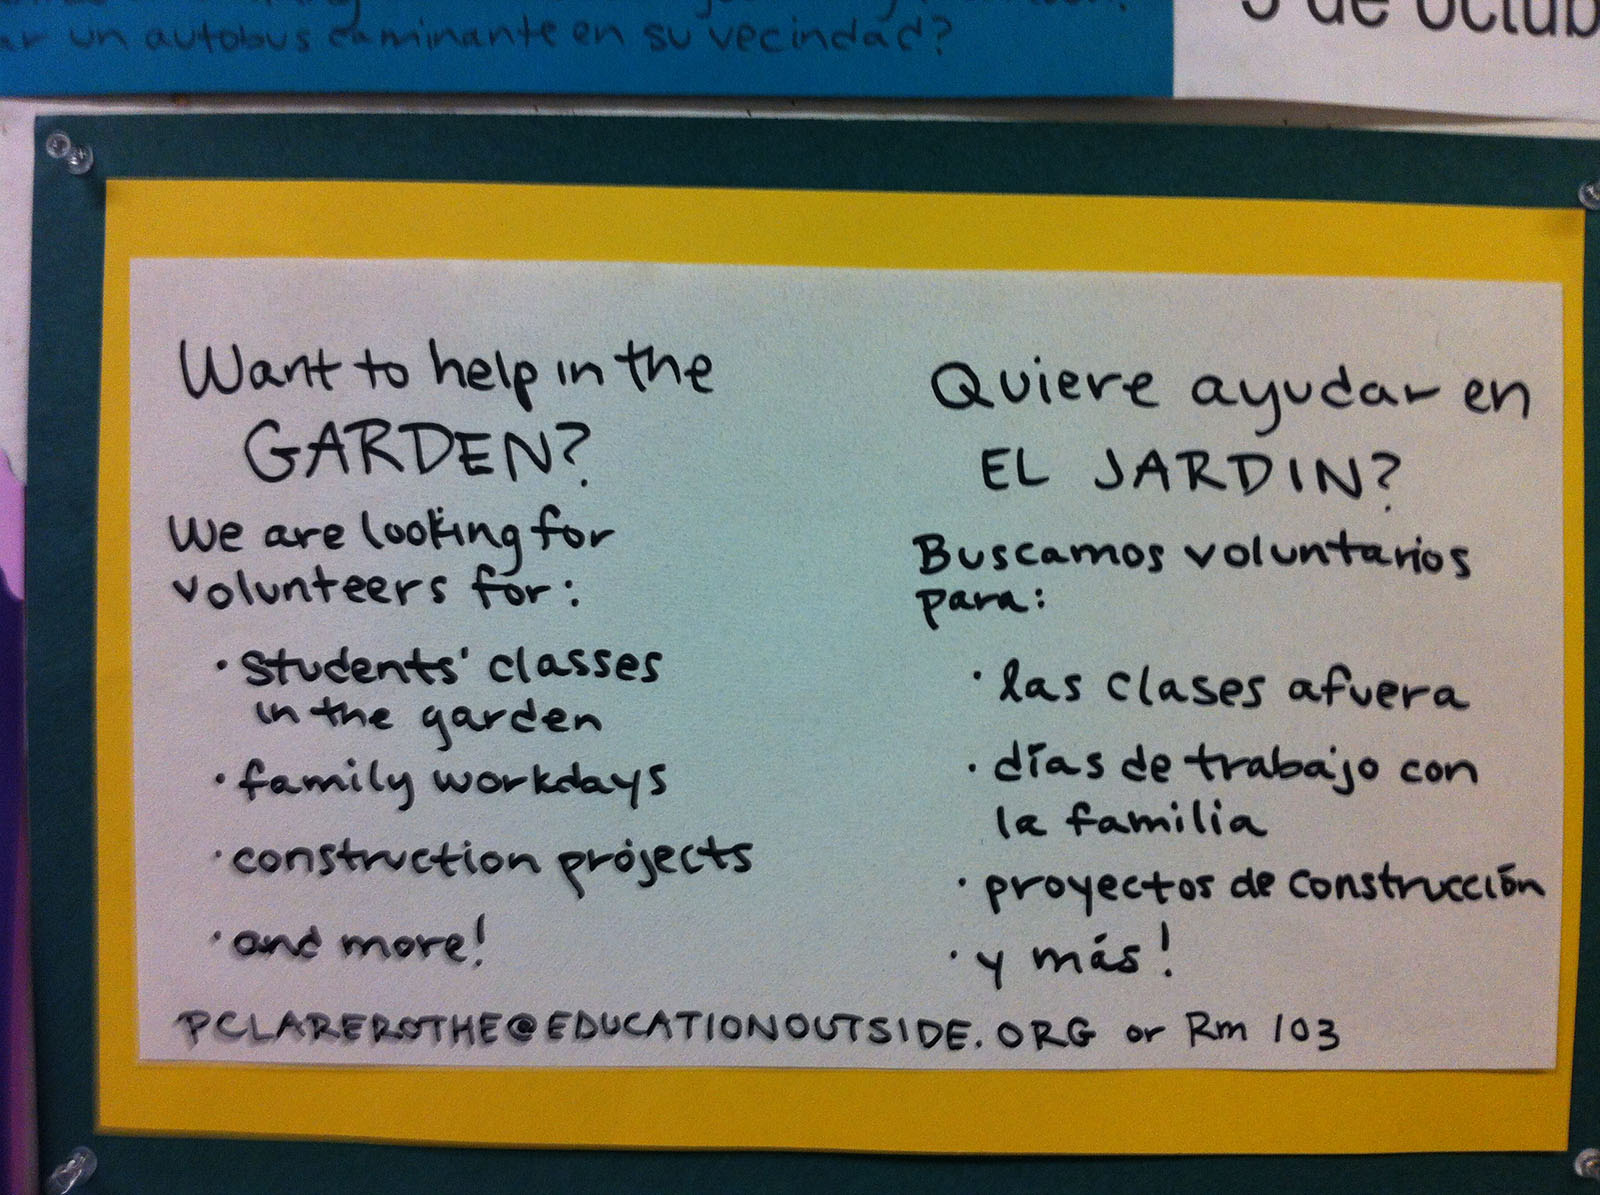 un autobus caminante en su vecindad?
de
Want to help in the
GARDEN?
We are looking for
volunteers for:
· students' classes
in the garden
· family workdays
· construction projects
· and more!
Quiere ayudar en
EL JARDIN?
Buscamos voluntarios
para:
· las clases afuera
· días de trabajo con
la familia
· proyectos de construcción
· y más!
PCLAREROTHE@EDUCATIONOUTSIDE.ORG or Rm 103